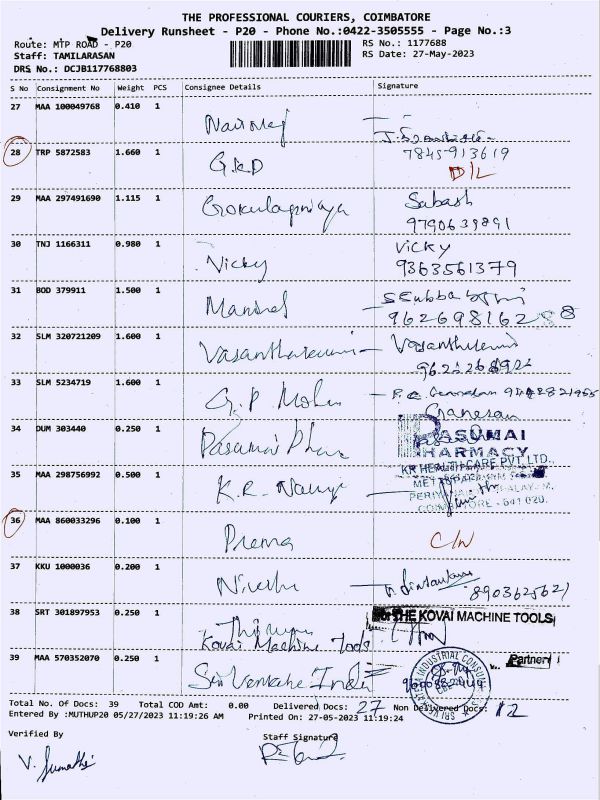 THE PROFESSIONAL COURIERS, COIMBATORE
Delivery Runsheet - P20 - Phone No.:0422-3505555 - Page No.:3
Route: MTP ROAD - P20
RS No.: 1177688
Staff: TAMILARASAN
RS Date: 27-May-2023
DRS No.: DCJB117768803
S No Consignment No Weight PCS Consignee Details Signature
27 MAA 100049768 0.410 1
28 TRP 5872583 1.660 1 G.K.D 7845913619
D/L
29 MAA 297491690 1.115 1 Gokulapriya Sabash
9790639891
30 TNJ 1166311 0.980 1 Nicky Vicky
9363561379
31 BOD 379911 1.500 1
9626981628 8
32 SLM 320721209 1.600 1 Vasanthakumar
33 SLM 5234719 1.600 1 G.P Mohan
Ganesan
34 DUM 303440 0.250 1 Pasumai Phar
PASUMAI
PHARMACY
KR HEALTH CARE PVT. LTD.,
35 MAA 298756992 0.500 1 K.R.
COIMBATORE - 641 020.
36 MAA 860033296 0.100 1 Prema C/N
37 KKU 1000036 0.200 1 8903625621
38 SRT 301897953 0.250 1
Kovai Machine Tools
For THE KOVAI MACHINE TOOLS
Partner
39 MAA 570352070 0.250 1 Sri Venkate India
INDUSTRIAL CONSUL
Total No. Of Docs: 39 Total COD Amt: 0.00 Delivered Docs: 27 Non Delivered Docs: 12
Entered By :MUTHUP20 05/27/2023 11:19:26 AM Printed On: 27-05-2023 11:19:24
Verified By Staff Signature
V. Sumathi